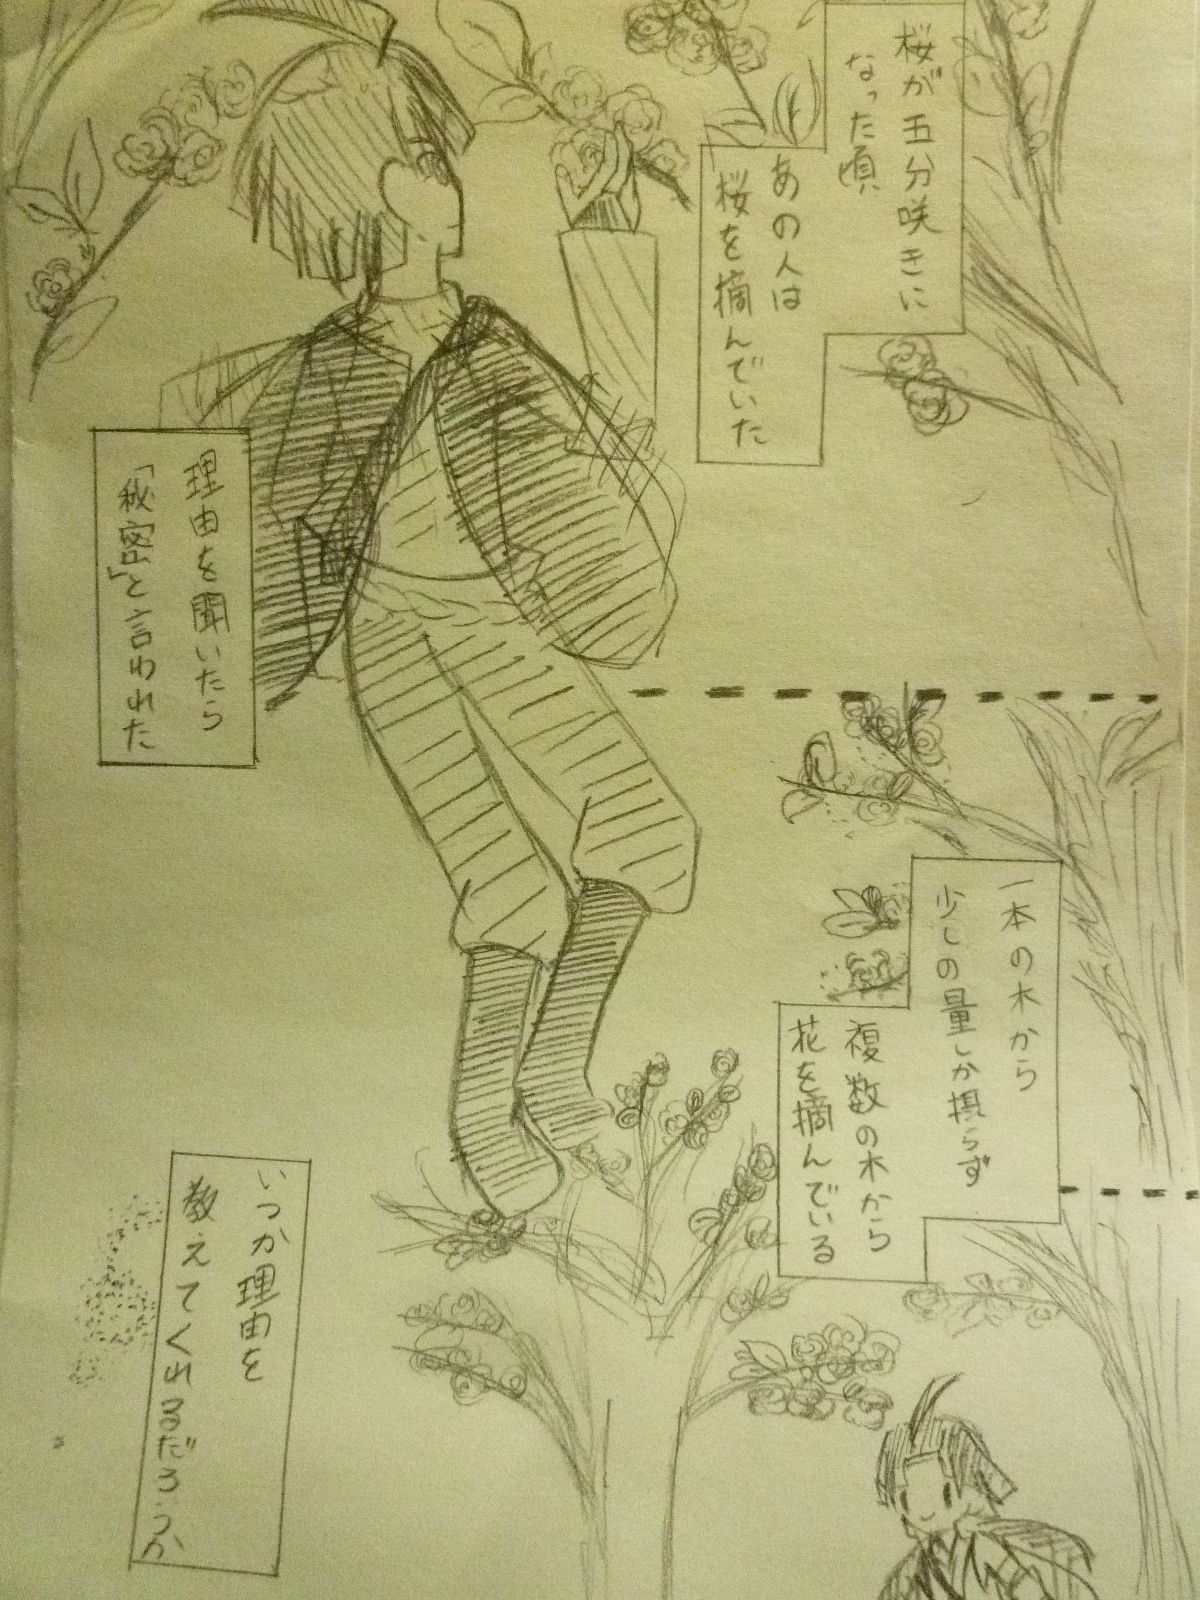 桜が五分咲きに
なった頃
あの人は
桜を摘んでいた
理由を聞いたら
「秘密」と言われた
一本の木から
少しの量しか摂らず
複数の木から
花を摘んでいる
いつか理由を
教えてくれるだろうか